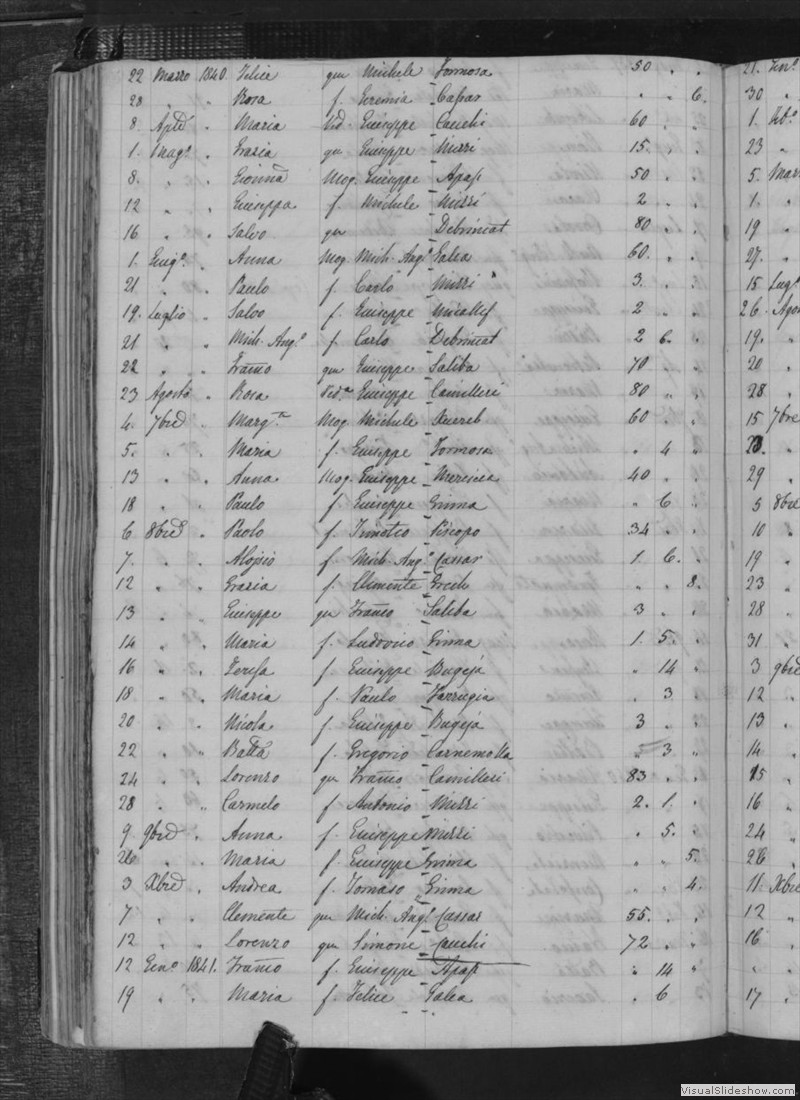 22 Marzo 1840 Felice qm Michele Formosa 50 " "
28 " " Rosa f. Geremia Cassar " " 6.
8. Aple " Maria Vid. Giuseppe Cauchi 60 " "
1. Mago. " Grazia qm Giuseppe Mizzi 15. " "
8. " " Giovna Mog. Giuseppe Apap 50 " "
12 " " Giuseppa f. Michele Mizzi 2 " "
16 " " Salvo qm Debrincat 80 " "
1. Giugo. " Anna Mog. Mich. Ango Galea 60. " "
21 " " Paulo f. Carlo Mizzi 3. " "
19. Luglio " Salvo f. Giuseppe Micallef 2 " "
21 " " Mich. Ango. f. Carlo Debrincat 2 6. "
22 " " Franco qm Giuseppe Saliba 70 " "
23 Agosto " Rosa Veda Giuseppe Camilleri 80 " "
4. 7bre " Margta Mog Michele Xuereb 60 " "
5. " " Maria f. Giuseppe Formosa " 4 "
13 " " Anna Mog. Giuseppe Mercieca 40 " "
18 " " Paulo f Giuseppe Grima " 6 "
6 8bre " Paolo f. Timoteo Piscopo 34 " "
7. " " Aloisio f Mich. Ango. Cassar 1. 6. "
12 " " Grazia f. Clemente Grech " " 8.
13 " " Giuseppe qm Franco Saliba 3 " "
14 " " Maria f. Ludovico Grima 1. 5. "
16 " " Teresa f Giuseppe Bugeja " 14 "
18 " " Maria f. Paulo Farrugia " 3 "
20 " " Nicola f. Giuseppe Bugeja 3 " "
22 " " Batta f. Gregorio Carnemolla " 3 "
24 " " Lorenzo qm Franco Camilleri 83 " "
28 " " Carmelo f Antonio Mizzi 2. 1. "
9 9bre " Anna f. Giuseppe Mizzi " 5. "
26 " " Maria f. Giuseppe Grima " " 5.
3 Xbre " Andrea f. Tomaso Grima " " 4.
7 " " Clemente qm Mich. Ango. Cassar 55. " "
12 " " Lorenzo qm Simone Cauchi 72 " "
12 Geno. 1841. Franco f. Giuseppe Apap " 14 "
19 " " Maria f. Felice Galea " 6 "
21. Geno
30 "
1. Febo.
23 "
5. Marz
1. "
19 "
27. "
15 Lugo
26 Agos
19. "
20 "
28. "
15 7bre
29 "
5 8bre
10 "
19 "
23 "
28. "
31 "
3 9bre
12 "
13 "
14 "
15 "
16 "
24 "
26 "
11. Xbre
12 "
16 "
" "
17 "
VisualSlideshow.com